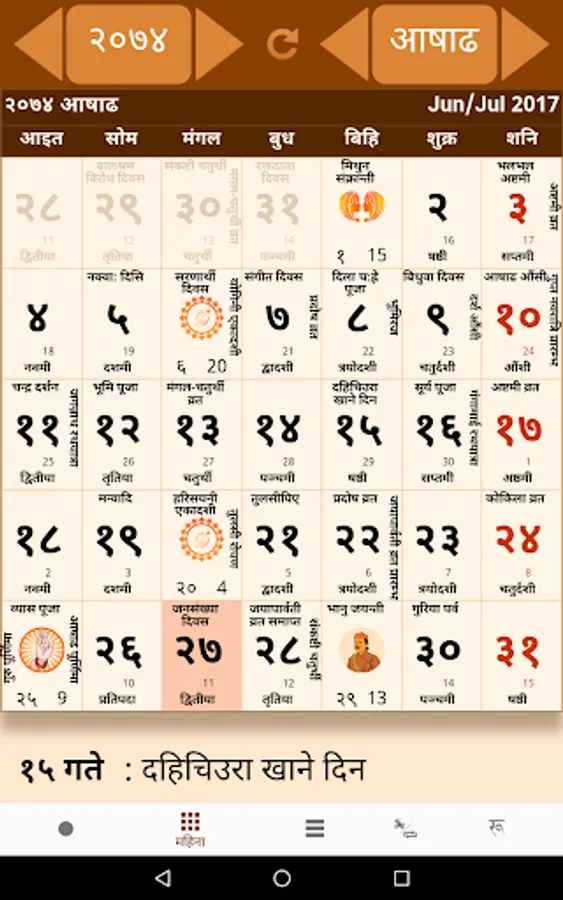 २०७४
आषाढ
२०७४ आषाढ Jun/Jul 2017
आइत सोम मंगल बुध बिहि शुक्र शनि
२८ 11 द्वितीया
बालश्रम विरोध दिवस २९ 12 तृतिया
संकष्टी चतुर्थी ३० 13 चतुर्थी
रक्तदाता दिवस ३१ 14 पञ्चमी
मिथुन संक्रान्ती १ 15
२ 16 षष्ठी
भलभल अष्टमी ३ 17 सप्तमी
४ 18 नवमी
नक्वा: दिसि ५ 19 दशमी
सरणार्थी दिवस योगिनी एकादशी ६ 20
संगीत दिवस प्रदोष व्रत ७ 21 द्वादशी
दिला च:ह्रे पूजा ८ 22 त्रयोदशी
विधुवा दिवस दर्श औंसी ९ 23 चतुर्दशी
आषाढ औंसी १० 24 औंशी
चन्द्र दर्शन जगन्नाथ रथयात्रा ११ 25 द्वितीया
भूमि पूजा १२ 26 तृतिया
मंगल-चतुर्थी व्रत १३ 27 चतुर्थी
१४ 28 पञ्चमी
दहिचिउरा खाने दिन १५ 29 षष्ठी
सूर्य पूजा १६ 30 सप्तमी
अष्टमी व्रत १७ 1 अष्टमी
१८ 2 नवमी
मन्वादि १९ 3 दशमी
हरिसयनी एकादशी तुलसी रोपण २० 4
तुलसीपिए २१ 5 द्वादशी
प्रदोष व्रत २२ 6 त्रयोदशी
२३ 7 त्रयोदशी
कोकिला व्रत २४ 8 चतुर्दशी
व्यास पूजा गुरु पूर्णिमा आषाढ पूर्णिमा २५ 9
२६ 10 प्रतिपदा
जनसंख्या दिवस २७ 11 द्वितीया
जयापार्वती व्रत समाप्त संकष्टी चतुर्थी २८ 12 तृतिया
भानु जयन्ती २९ 13
गुरिया पर्व ३० 14 पञ्चमी
३१ 15 षष्ठी
१५ गते : दहिचिउरा खाने दिन
महिना
रू